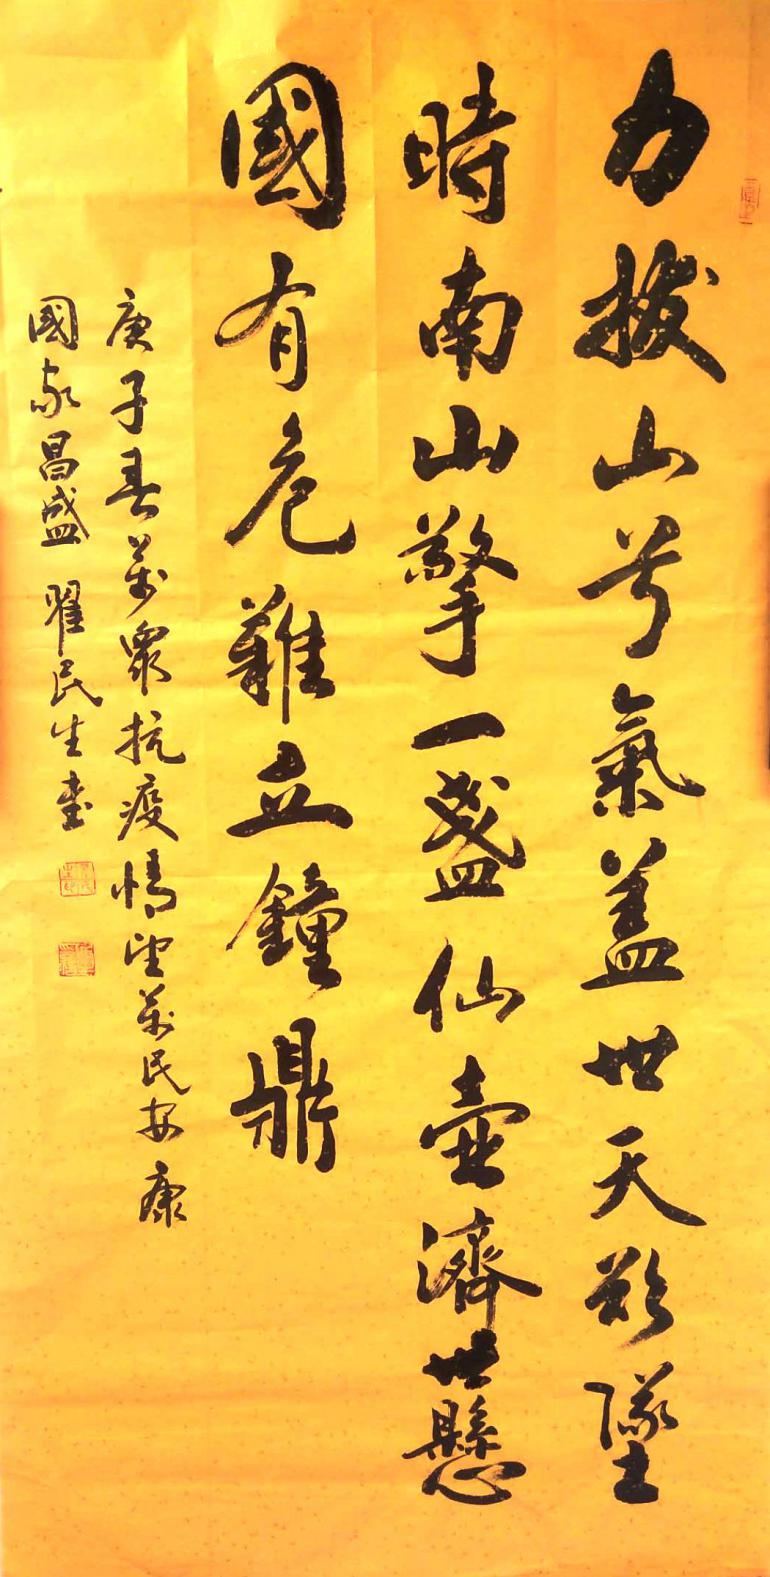 力拔山兮氣盖世天欲墜
時南山擎一盏仙壺濟世懸
國有危難立鐘鼎
庚子春萬眾抗疫情望萬民安康
國家昌盛 翟民生書